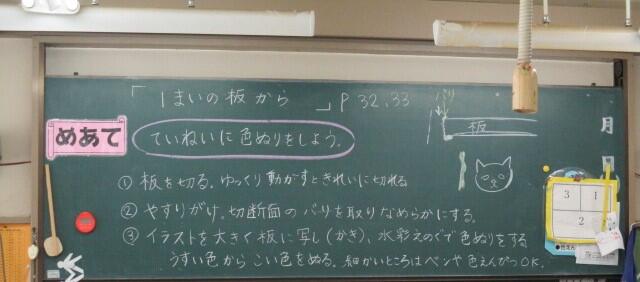 「1まいの板から 」P 32,33
板
めあて
ていねいに色ぬりをしよう。
① 板を切る。ゆっくり動かすときれいに切れる
② やすりがけ。切断面のバリを取りなめらかにする。
③ イラストを大きく板に写し(かき)、水彩えのぐで色ぬりをする
うすい色からこい色をぬる。細かいところはペンや色えんぴつOK.
月
3 1
2